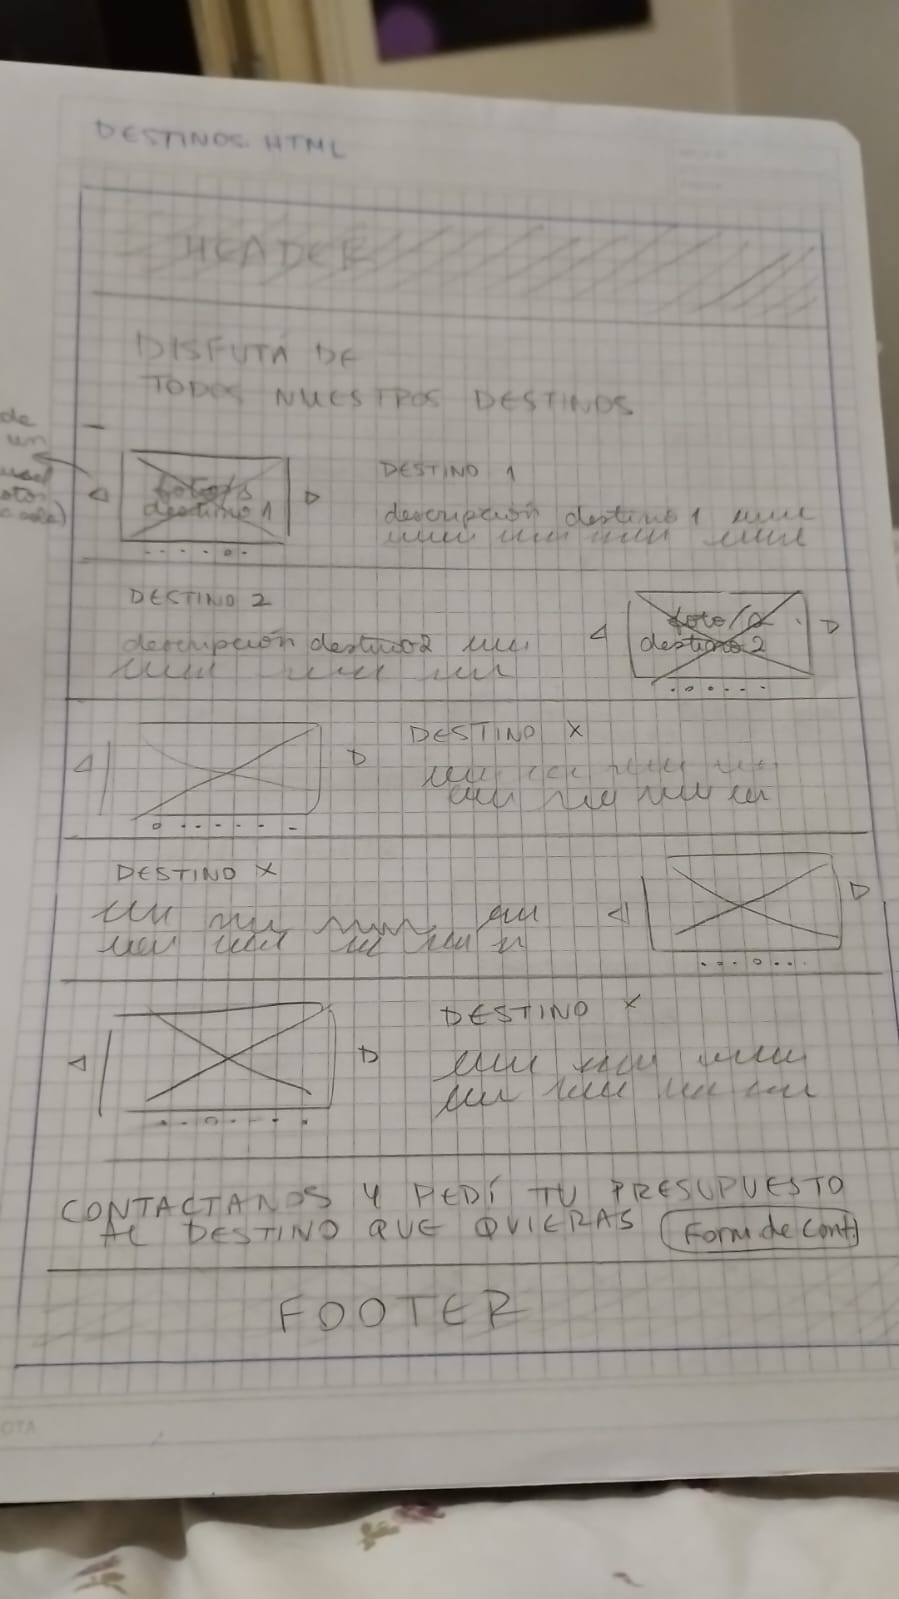 DESTINOS.HTML
HEADER
DISFUTÁ DE
TODOS NUESTROS DESTINOS
de
un
DESTINO 1
foto/s
destino 1
descripción destino 1
DESTINO 2
foto/s
destino 2
descripción destino 2
DESTINO X
DESTINO X
DESTINO X
CONTACTANOS Y PEDÍ TU PRESUPUESTO
AL DESTINO QUE QUIERAS
Form de cont.
FOOTER
OTA